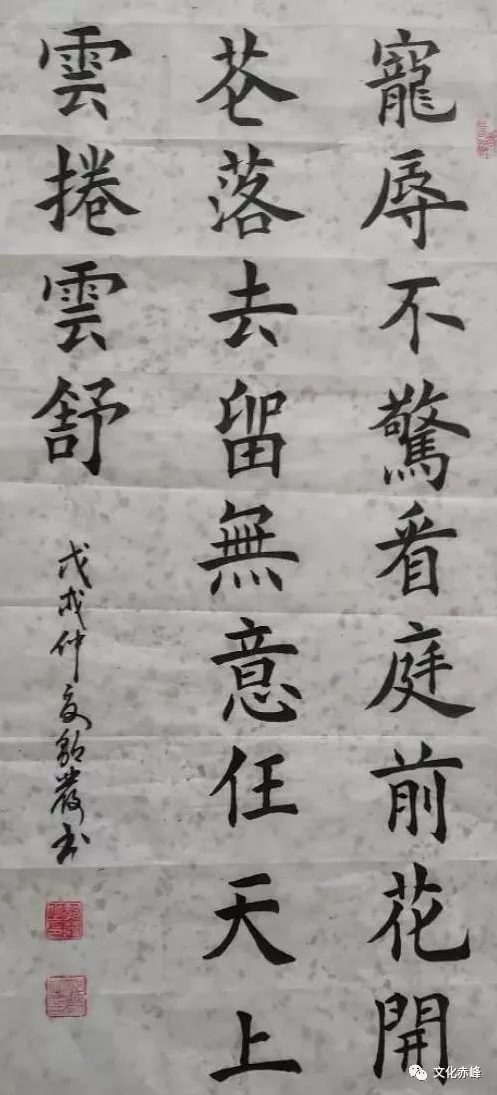 寵辱不驚看庭前花開
芲落去留無意任天上
雲捲雲舒
戊戌仲夏書
文化赤峰